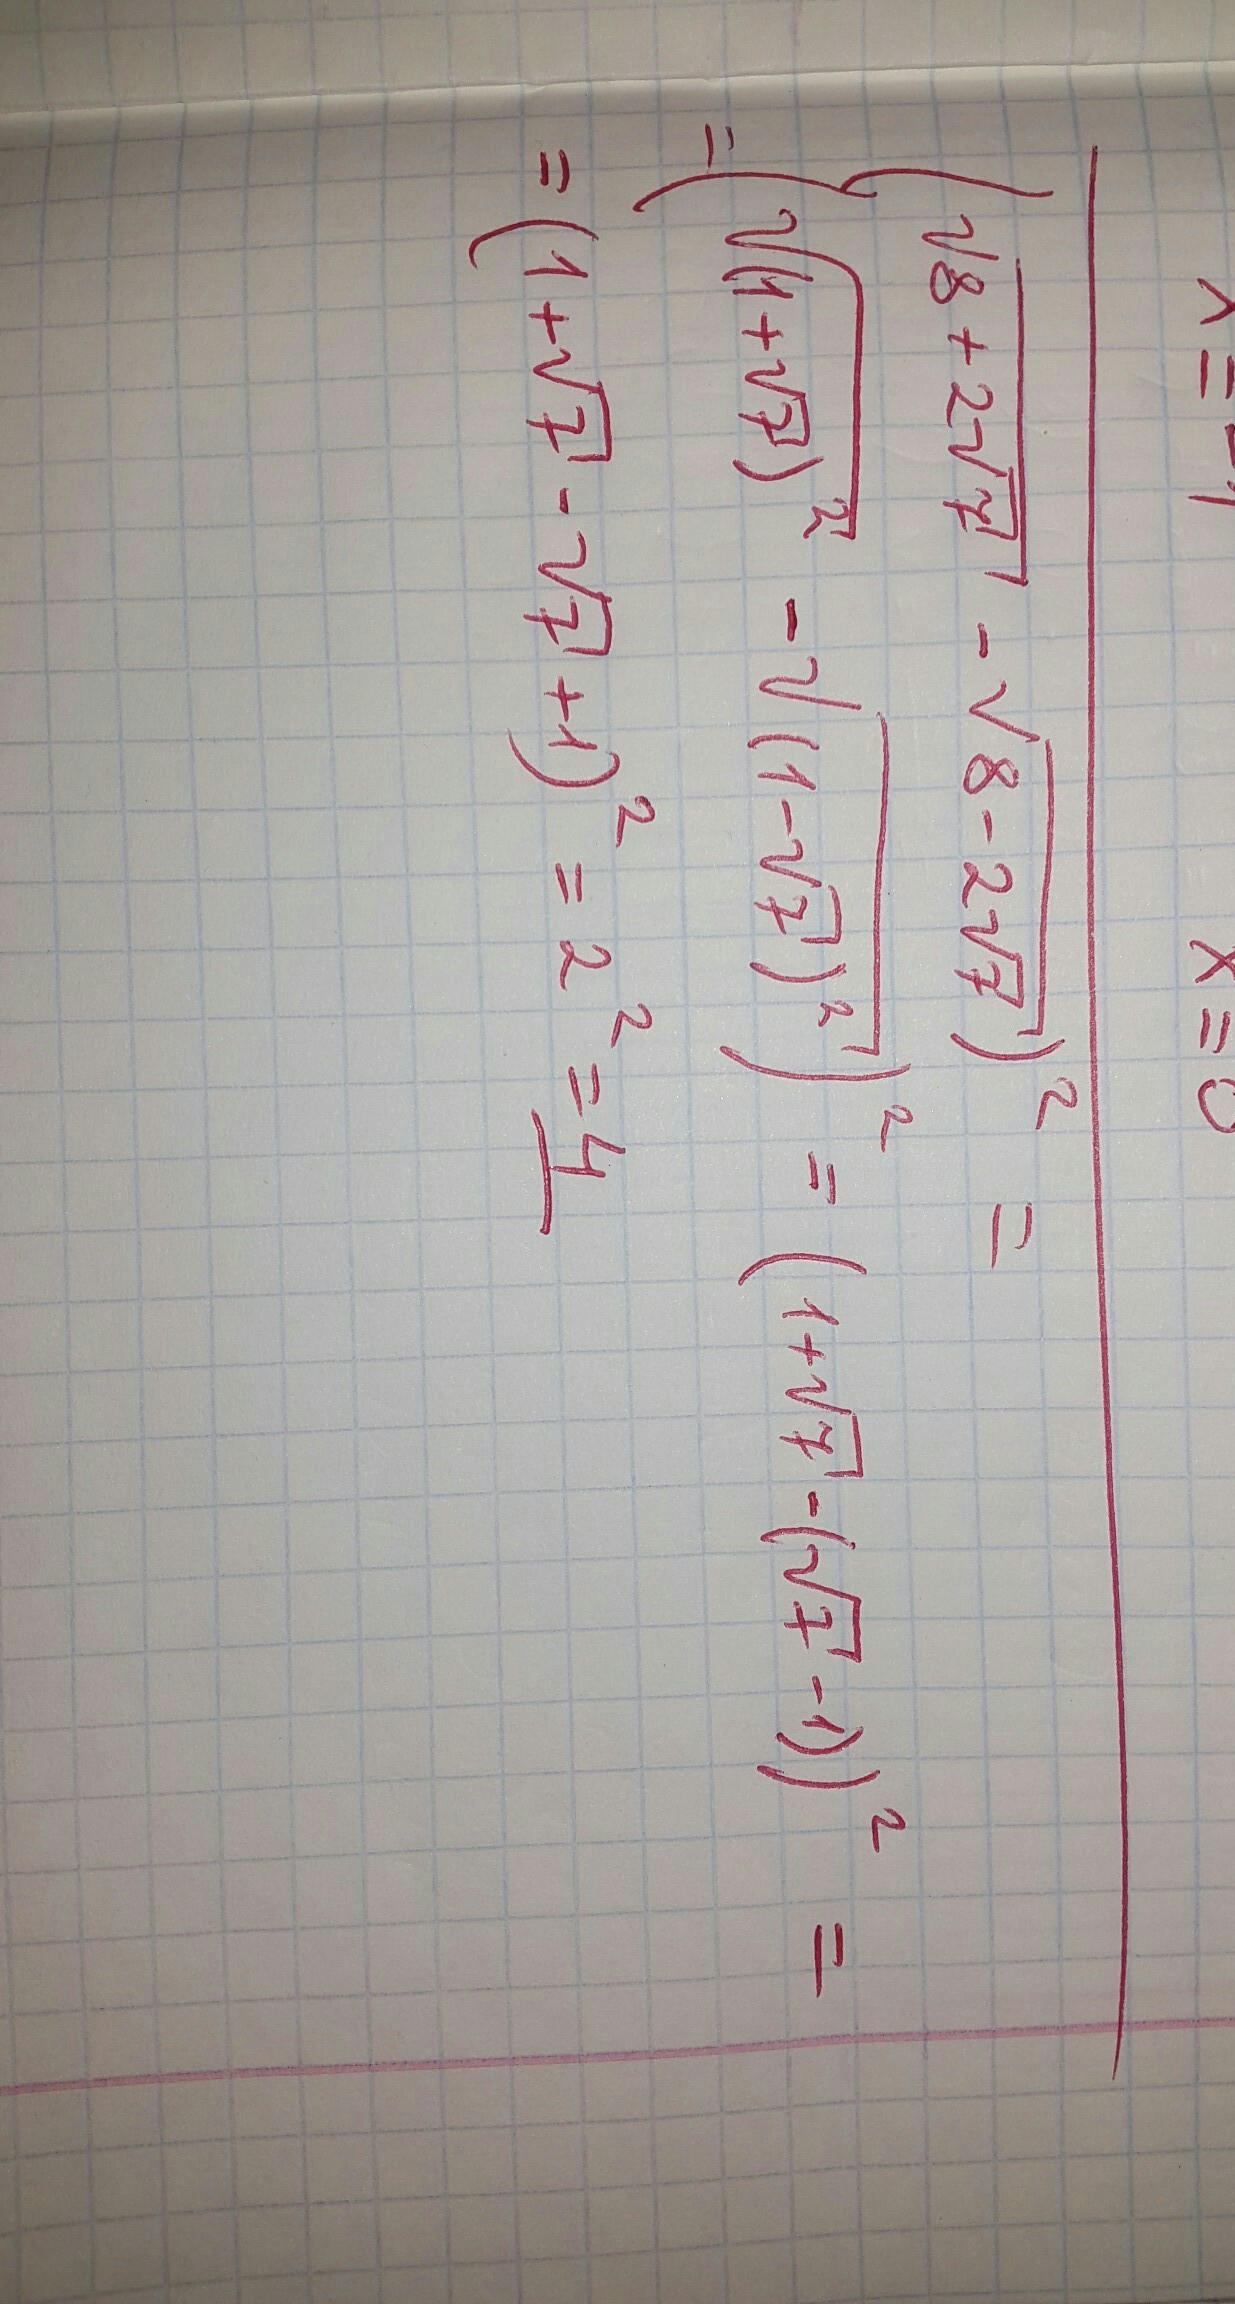 x = 0
(√(8+2√7) - √(8-2√7))² =
= (√((1+√7)²) - √((1-√7)²))² = (1+√7 - (√7-1))² =
= (1+√7 - √7+1)² = 2² = 4